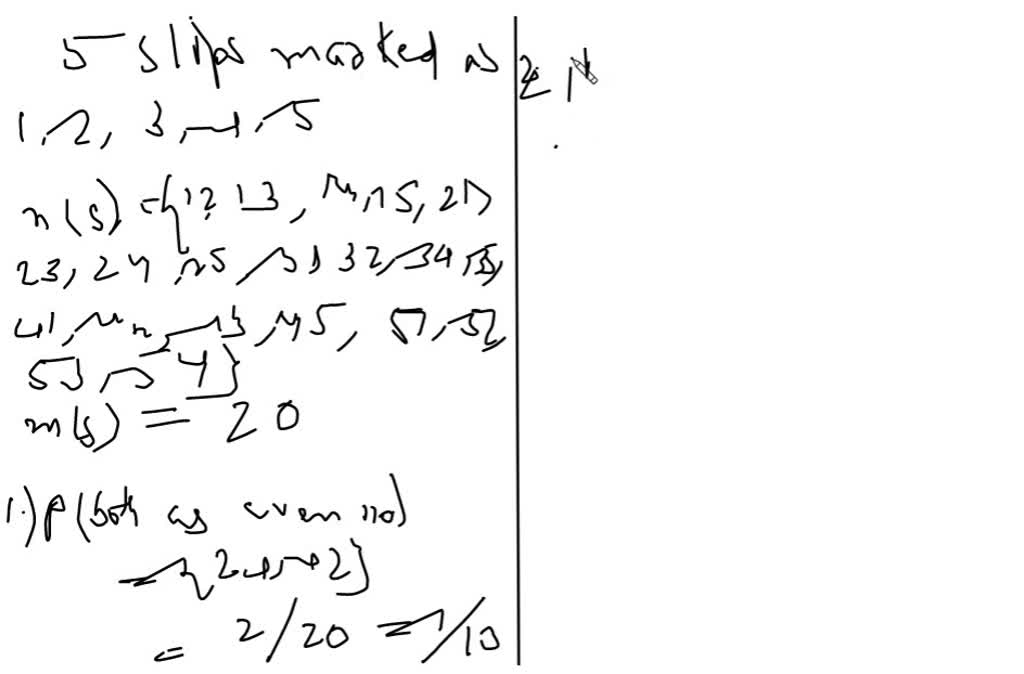 5 slips marked as
1, 2, 3, 4, 5
n(s) = {12 13, 14, 15, 21
23, 24, 25, 31 32, 34, 35,
41, 42, 43, 45, 51, 52,
53, 54}
n(s) = 20
1.) P(both as even no)
= {24, 42}
= 2/20 = 1/10
2